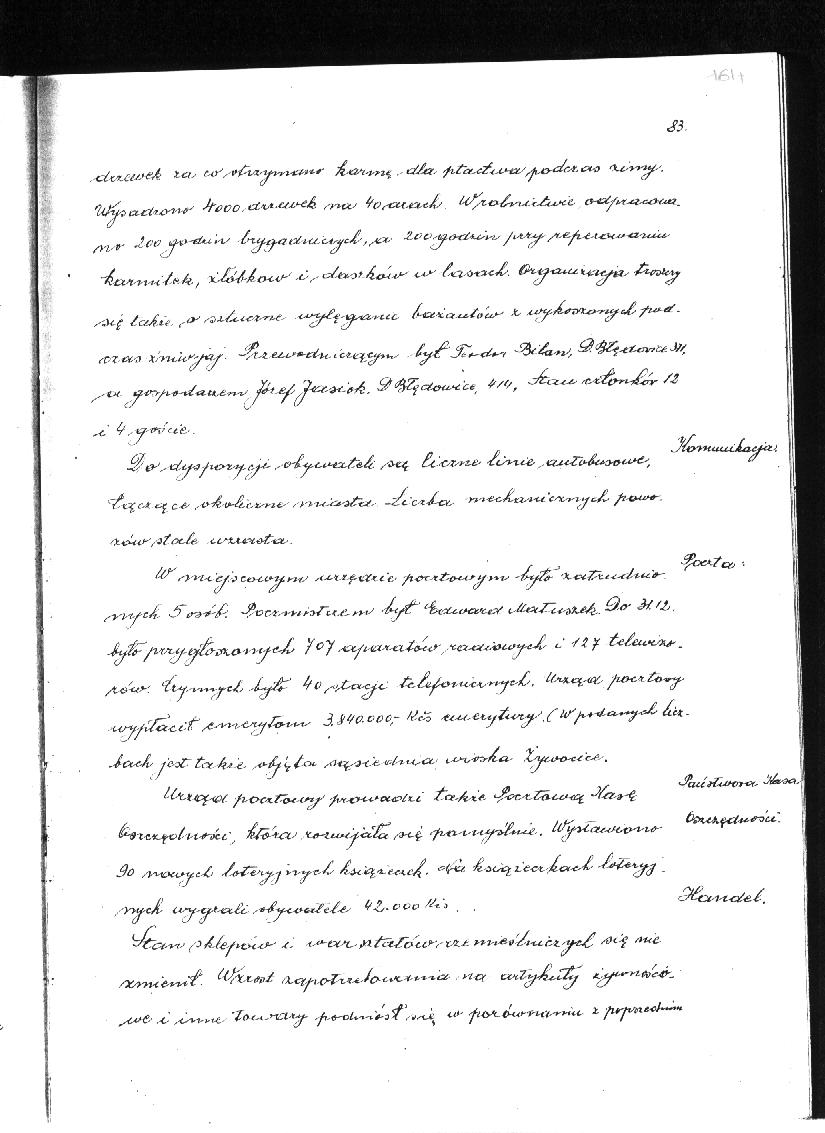 164
83.
drzewek za co otrzymano karmę dla ptactwa podczas zimy.
Wysadzono 4000 drzewek na 40 arach. W rolnictwie odpracowa-
no 200 godzin brygadniczych, a 200 godzin przy reperowaniu
karmitek, żłóbkow i daszków w lasach. Organizacja troszczy
się także o sztuczne wylęganie bażantów z wykoszonych pod-
czas żniw jaj. Przewodniczącym był Teodor Bilan, D. Błędowice 311,
a gospodarzem Józef Jasiok. D Błędowice, 414, Stan członków 12
i 4 goście.
Komunikacja:
Do dyspozycji obywateli są liczne linie autobusowe,
łączące okoliczne miasta. Liczba mechanicznych powo-
zów stale wzrasta.
Poczta:
W miejscowym urzędzie pocztowym było zatrudnio-
nych 5 osób. Poczmistrzem był Edward Matuszek. Do 31.12.
było przygłoszonych 707 aparatów radiowych i 127 telewizo-
rów. Czynnych było 40 stacji telefonicznych. Urząd pocztowy
wypłacił emerytom 3,840.000,- Kčs emerytury. (W podanych licz-
bach jest także objęta sąsiednia wioska Żywocice.
Państwowa Kasa
Oszczędności.
Urząd pocztowy prowadzi także Pocztową Kasę
Oszczędności, która rozwijała się pomyślnie. Wystawiono
90 nowych loteryjnych książeczek. Na książeczkach loteryj-
nych wygrali obywatele 42.000 Kčs.
Handel.
Stan sklepów i warsztatów rzemieślniczych się nie
zmienił. Wzrost zapotrzebowania na artykuły żywnościo-
we i inne towary podniósł się w porównaniu z poprzednim